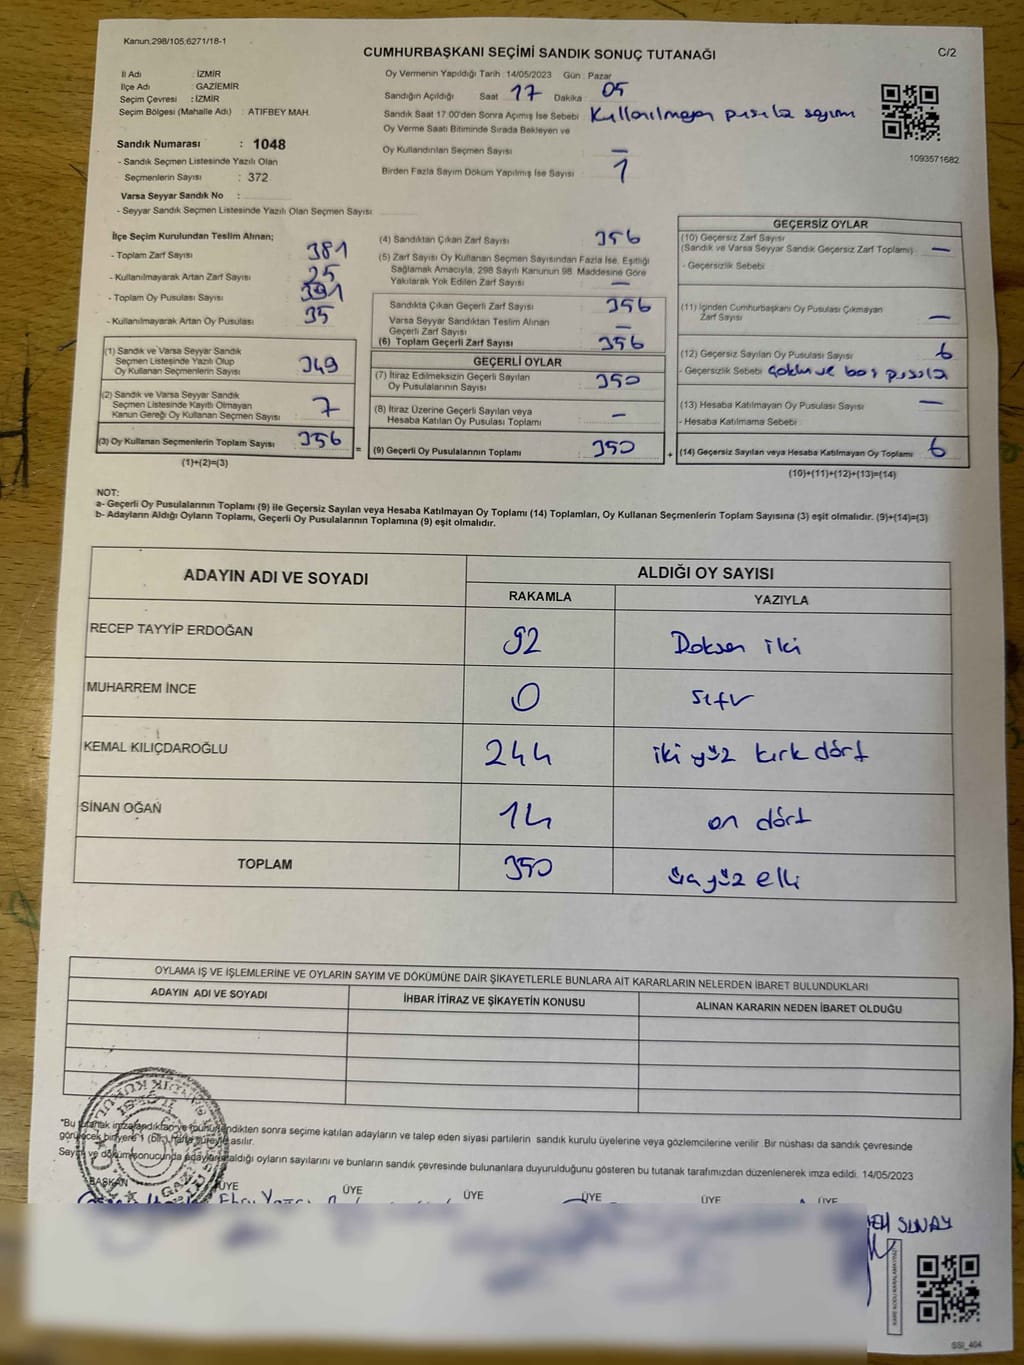 Kanun,298/105;6271/18-1
CUMHURBAŞKANI SEÇİMİ SANDIK SONUÇ TUTANAĞI
C/2
İl Adı : İZMİR
İlçe Adı : GAZİEMİR
Seçim Çevresi : İZMİR
Seçim Bölgesi (Mahalle Adı) : ATIFBEY MAH.
Sandık Numarası : 1048
- Sandık Seçmen Listesinde Yazılı Olan
Seçmenlerin Sayısı : 372
Varsa Seyyar Sandık No :
- Seyyar Sandık Seçmen Listesinde Yazılı Olan Seçmen Sayısı
Oy Vermenin Yapıldığı Tarih : 14/05/2023 Gün : Pazar
Sandığın Açıldığı Saat 17 Dakika 05
Sandık Saat 17.00'den Sonra Açımış İse Sebebi : Kullanılmayan pusula sayımı
Oy Verme Saati Bitiminde Sırada Bekleyen ve
Oy Kullandırılan Seçmen Sayısı : —
Birden Fazla Sayım Döküm Yapılmış İse Sayısı : 1
1093571682
İlçe Seçim Kurulundan Teslim Alınan;
- Toplam Zarf Sayısı 381
- Kullanılmayarak Artan Zarf Sayısı 25
- Toplam Oy Pusulası Sayısı 391
- Kullanılmayarak Artan Oy Pusulası 35
(1) Sandık ve Varsa Seyyar Sandık
Seçmen Listesinde Yazılı Olup
Oy Kullanan Seçmenlerin Sayısı 349
(2) Sandık ve Varsa Seyyar Sandık
Seçmen Listesinde Kayıtlı Olmayan
Kanun Gereği Oy Kullanan Seçmen Sayısı 7
(3) Oy Kullanan Seçmenlerin Toplam Sayısı 356
(1)+(2)=(3)
(4) Sandıktan Çıkan Zarf Sayısı 356
(5) Zarf Sayısı Oy Kullanan Seçmen Sayısından Fazla İse, Eşitliği
Sağlamak Amacıyla, 298 Sayılı Kanunun 98. Maddesine Göre
Yakılarak Yok Edilen Zarf Sayısı —
Sandıkta Çıkan Geçerli Zarf Sayısı 356
Varsa Seyyar Sandıktan Teslim Alınan
Geçerli Zarf Sayısı —
(6) Toplam Geçerli Zarf Sayısı 356
GEÇERLİ OYLAR
(7) İtiraz Edilmeksizin Geçerli Sayılan
Oy Pusulalarının Sayısı 350
(8) İtiraz Üzerine Geçerli Sayılan veya
Hesaba Katılan Oy Pusulaları Toplamı —
= (9) Geçerli Oy Pusulalarının Toplamı 350
GEÇERSİZ OYLAR
(10) Geçersiz Zarf Sayısı
(Sandık ve Varsa Seyyar Sandık Geçersiz Zarf Toplamı) —
- Geçersizlik Sebebi
(11) İçinden Cumhurbaşkanı Oy Pusulası Çıkmayan
Zarf Sayısı —
(12) Geçersiz Sayılan Oy Pusulası Sayısı 6
- Geçersizlik Sebebi çoklu ve boş pusula
(13) Hesaba Katılmayan Oy Pusulası Sayısı —
- Hesaba Katılmama Sebebi
+ (14) Geçersiz Sayılan veya Hesaba Katılmayan Oy Toplamı 6
(10)+(11)+(12)+(13)=(14)
NOT:
a- Geçerli Oy Pusulalarının Toplamı (9) ile Geçersiz Sayılan veya Hesaba Katılmayan Oy Toplamı (14) Toplamları, Oy Kullanan Seçmenlerin Toplam Sayısına (3) eşit olmalıdır. (9)+(14)=(3)
b- Adayların Aldığı Oyların Toplamı, Geçerli Oy Pusulalarının Toplamına (9) eşit olmalıdır.
ADAYIN ADI VE SOYADI
ALDIĞI OY SAYISI
RAKAMLA YAZIYLA
RECEP TAYYİP ERDOĞAN 92 Doksan iki
MUHARREM İNCE 0 sıfır
KEMAL KILIÇDAROĞLU 244 iki yüz kırk dört
SİNAN OĞAN 14 on dört
TOPLAM 350 üç yüz elli
OYLAMA İŞ VE İŞLEMLERİNE VE OYLARIN SAYIM VE DÖKÜMÜNE DAİR ŞİKAYETLERLE BUNLARA AİT KARARLARIN NELERDEN İBARET BULUNDUKLARI
ADAYIN ADI VE SOYADI İHBAR İTİRAZ VE ŞİKAYETİN KONUSU ALINAN KARARIN NEDEN İBARET OLDUĞU
*Bu tutanak imzalandıktan ve mühürlendikten sonra seçime katılan adayların ve talep eden siyasi partilerin sandık kurulu üyelerine veya gözlemcilerine verilir. Bir nüshası da sandık çevresinde
görülecek bir yere 1 (bir) hafta süreyle asılır.
Sayım ve döküm sonucunda adayların aldığı oyların sayılarını ve bunların sandık çevresinde bulunanlara duyurulduğunu gösteren bu tutanak tarafımızdan düzenlenerek imza edildi. 14/05/2023
BAŞKAN ÜYE ÜYE ÜYE ÜYE ÜYE ÜYE
SINAY
SSI_404